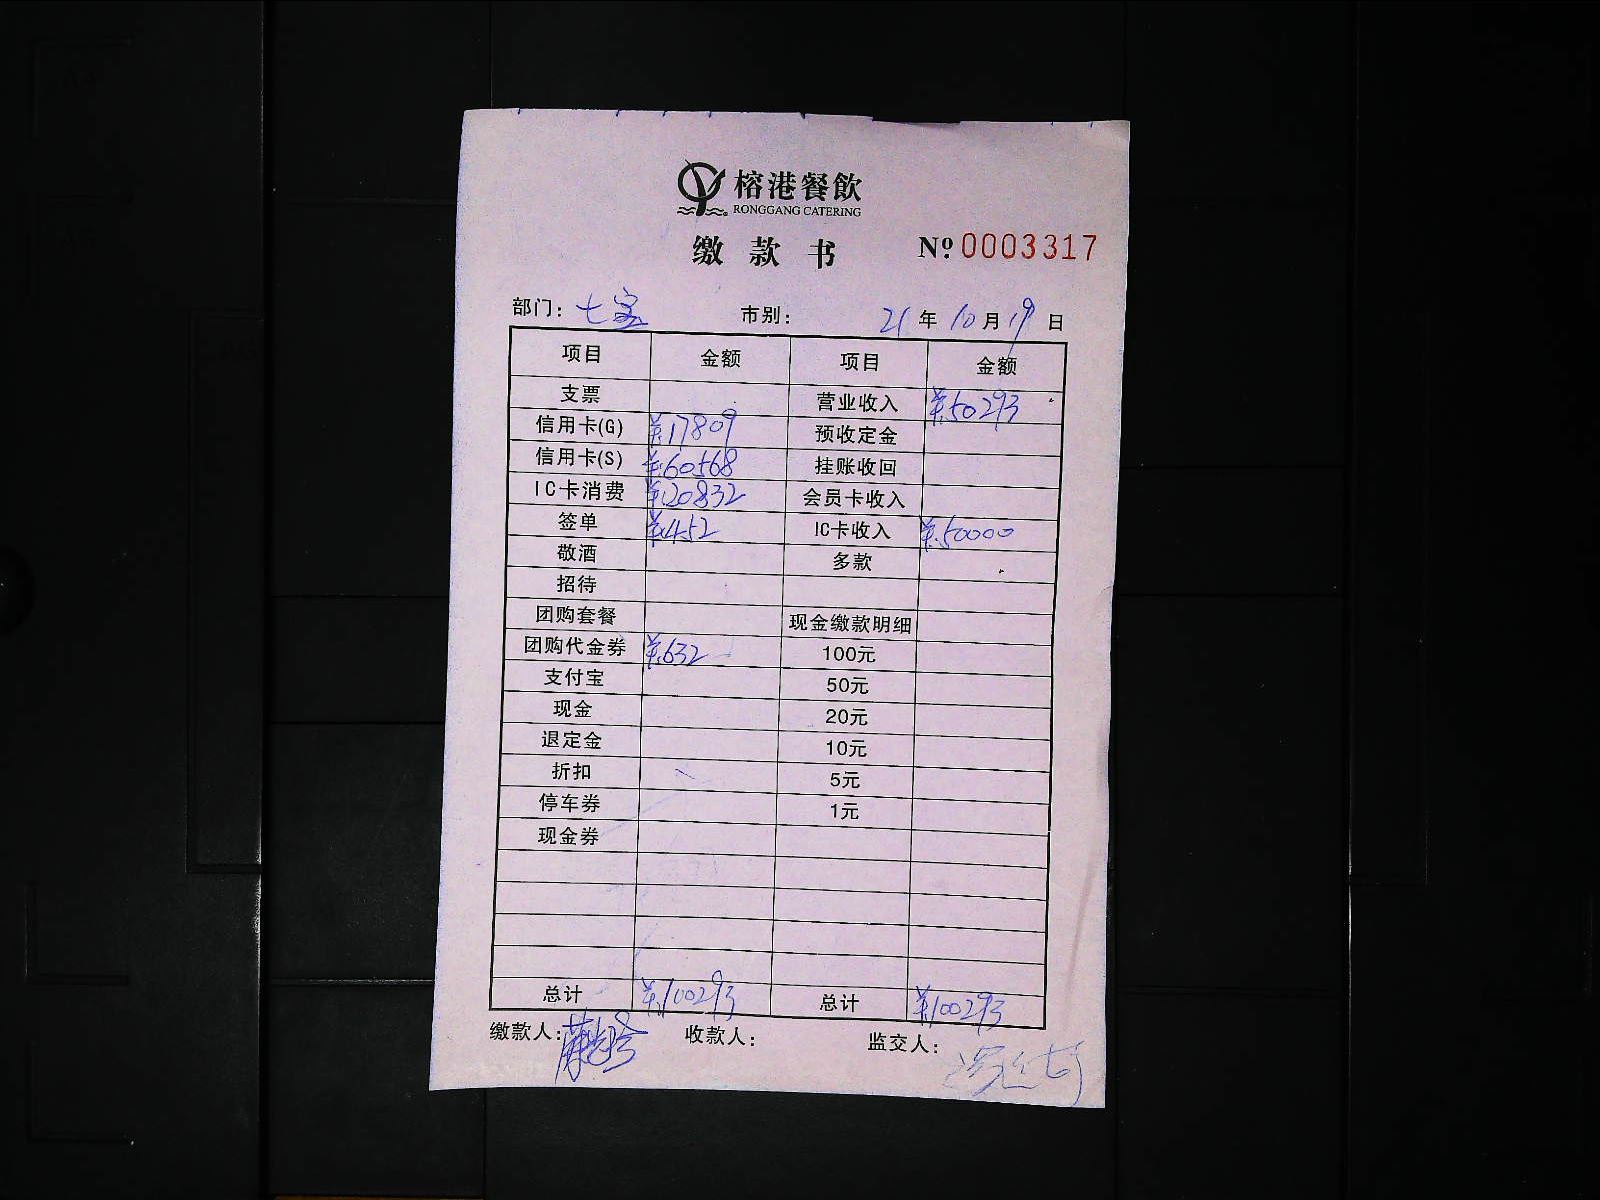 榕港餐飲
RONGGANG CATERING
缴款书 № 0003317
部门: 七宝 市别: 21 年 10 月 19 日
项目 金额 项目 金额
支票 营业收入 ¥50293
信用卡(G) ¥17809 预收定金
信用卡(S) ¥60568 挂账收回
IC卡消费 ¥20832 会员卡收入
签单 ¥452 IC卡收入 ¥50000
敬酒 多款
招待
团购套餐 现金缴款明细
团购代金券 ¥632 100元
支付宝 50元
现金 20元
退定金 10元
折扣 5元
停车券 1元
现金券
总计 ¥100293 总计 ¥100293
缴款人: 收款人: 监交人: